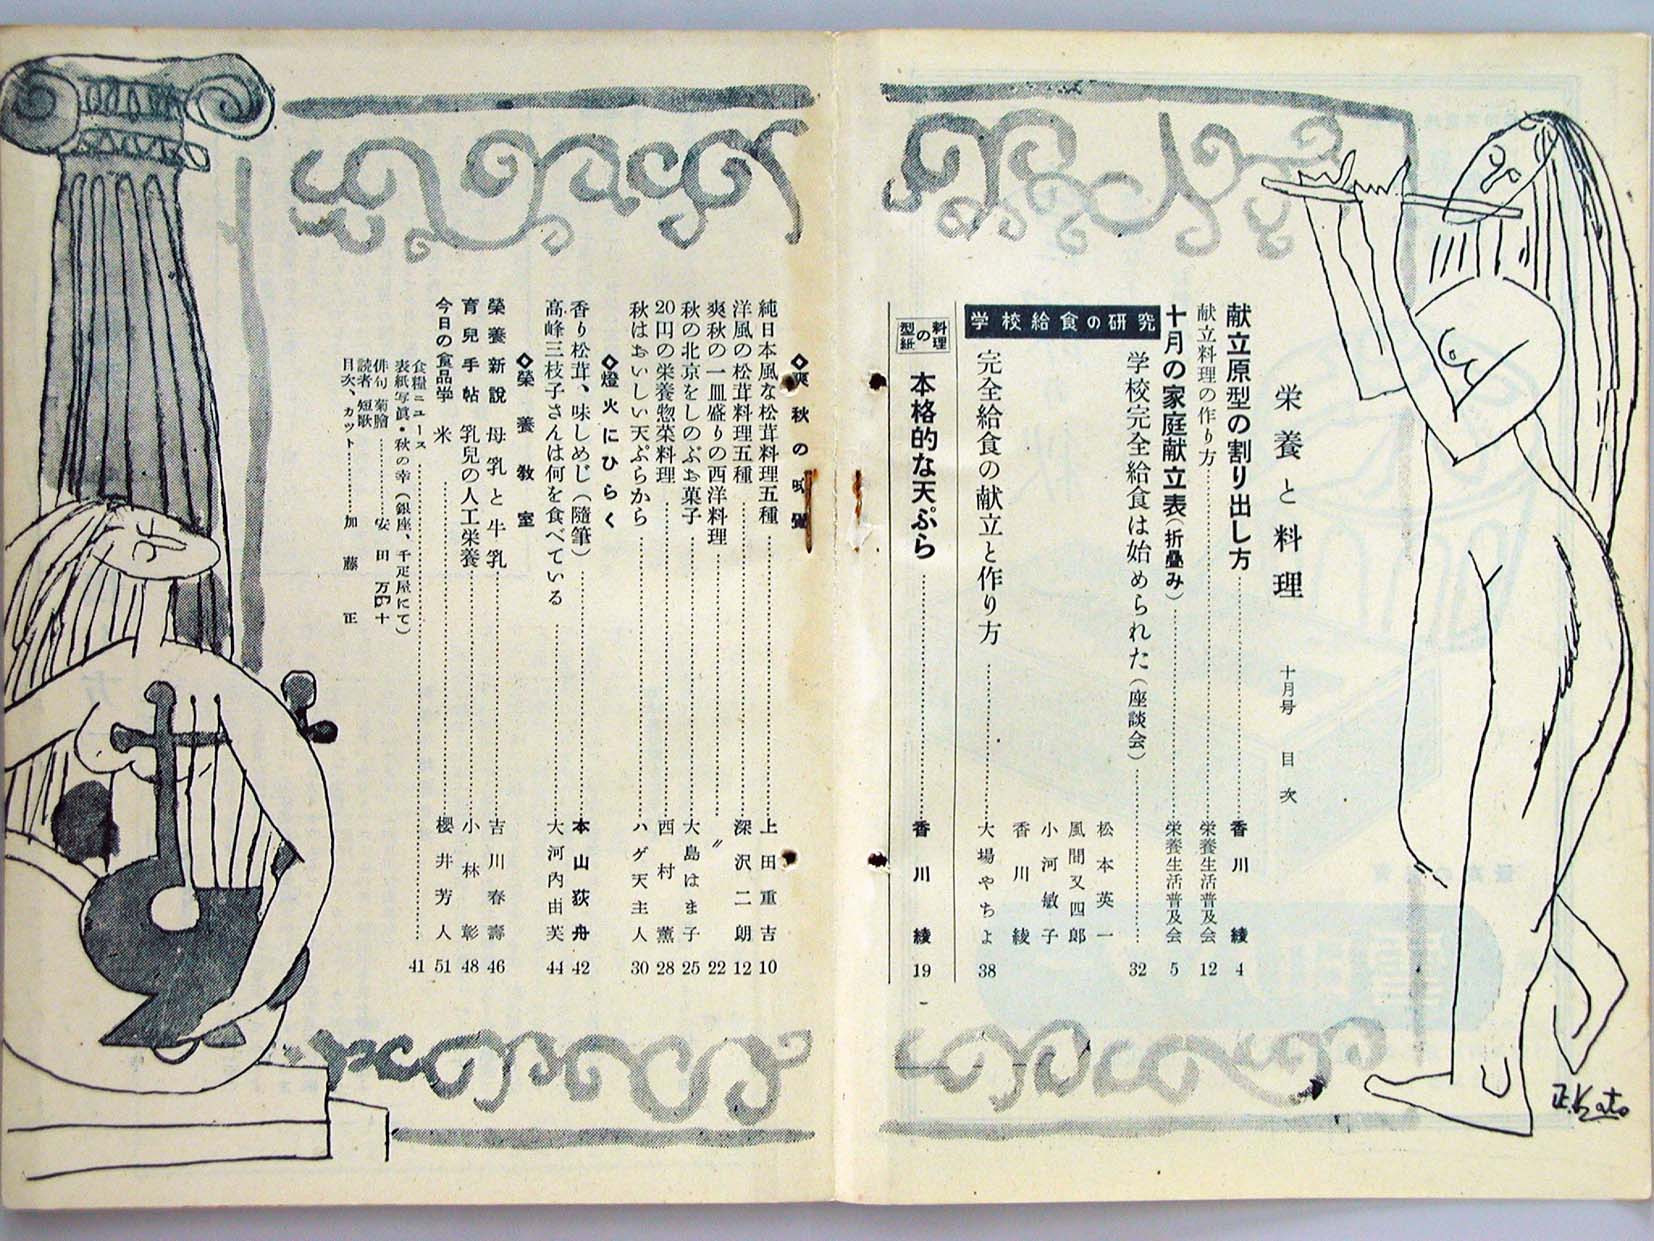 栄養と料理 十月号 目次
献立原型の割り出し方……香川綾 4
献立料理の作り方……栄養生活普及会 12
十月の家庭献立表(折疊み)……栄養生活普及会 5
学校給食の研究
学校完全給食は始められた(座談会)……32
松本英一
風間又四郎
小河敏子
香川綾
完全給食の献立と作り方……大場やちよ 38
料理の型紙
本格的な天ぷら……香川綾 19
◇爽秋の味覺
純日本風な松茸料理五種……上田重吉 10
洋風の松茸料理五種……深沢二朗 12
爽秋の一皿盛りの西洋料理……〃 22
秋の北京をしのぶお菓子……大島はま子 25
20円の栄養惣菜料理……西村薫 28
秋はおいしい天ぷらから……ハゲ天主人 30
◇燈火にひらく
香り松茸、味しめじ(隨筆)……本山荻舟 42
高峰三枝子さんは何を食べている……大河内由芙 44
◇榮養教室
榮養新說 母乳と牛乳……吉川春壽 46
育兒手帖 乳兒の人工栄養……小林彰 48
今日の食品学 米……櫻井芳人 51
食糧ニュース……41
表紙写眞・秋の幸(銀座、千疋屋にて)
俳句 菊膾……安田
読者 短歌
目次、カット……加藤正
正.Kato